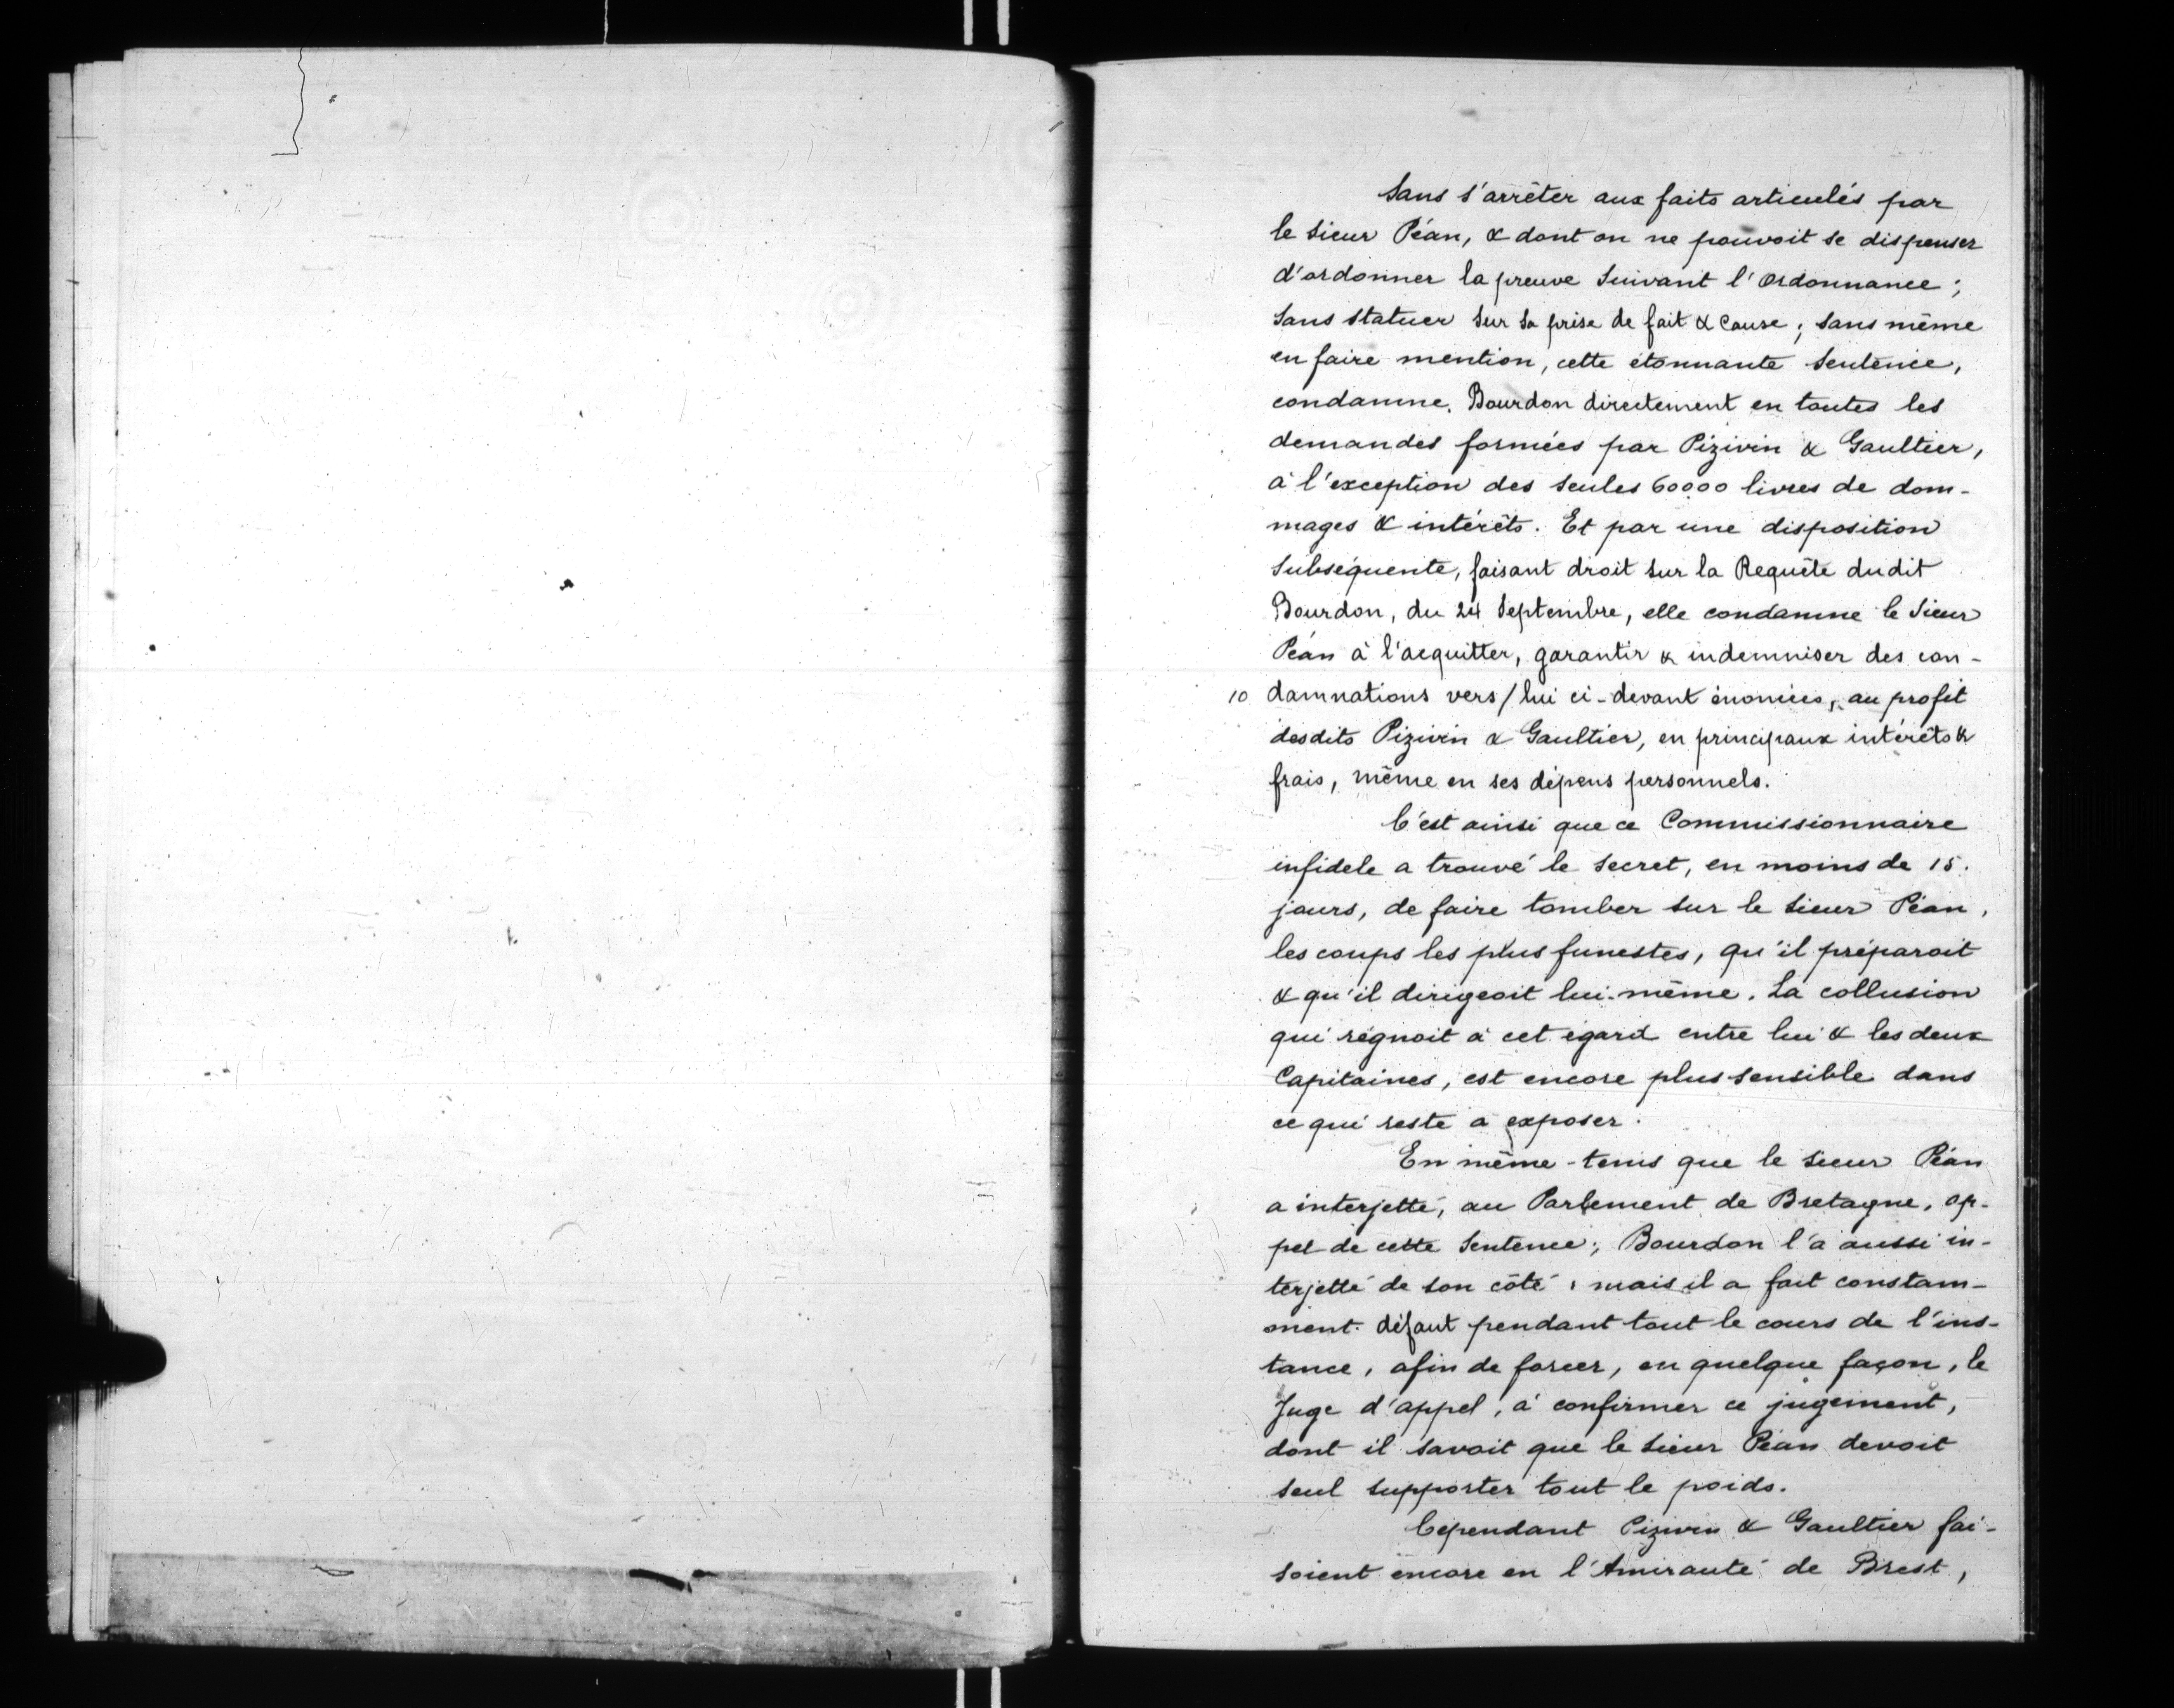 Sans s'arrêter aux faits articulés par
le Sieur Péan, & dont on ne pouvoit se dispenser
d'ordonner la preuve suivant l'Ordonnance ;
sans statuer sur sa prise de fait & cause ; sans même
en faire mention, cette étonnante sentence,
condamne Bourdon directement en toutes les
demandes formées par Pizivin & Gaultier,
à l'exception des seules 60000 livres de dom-
mages & intérêts. Et par une disposition
subséquente, faisant droit sur la Requête dudit
Bourdon, du 24 Septembre, elle condamne le Sieur
Péan à l'acquitter, garantir & indemniser des con-
10 damnations vers / lui ci-devant énoncées, au profit
desdits Pizivin & Gaultier, en principaux intérêts &
frais, même en ses dépens personnels.
C'est ainsi que ce Commissionnaire
infidele a trouvé le secret, en moins de 15.
jours, de faire tomber sur le Sieur Péan,
les coups les plus funestes, qu'il préparoit
& qu'il dirigeoit lui-même. La collusion
qui régnoit à cet égard entre lui & les deux
Capitaines, est encore plus sensible dans
ce qui reste à exposer.
En même-tems que le Sieur Péan
a interjetté, au Parlement de Bretagne, ap-
pel de cette Sentence ; Bourdon l'a aussi in-
terjetté de son côté : mais il a fait constam-
ment défaut pendant tout le cours de l'ins-
tance, afin de forcer, en quelque façon, le
Juge d'appel, à confirmer ce jugement,
dont il savait que le Sieur Péan devoit
seul supporter tout le poids.
Cependant Pizivin & Gaultier fai-
soient encore en l'Amirauté de Brest,